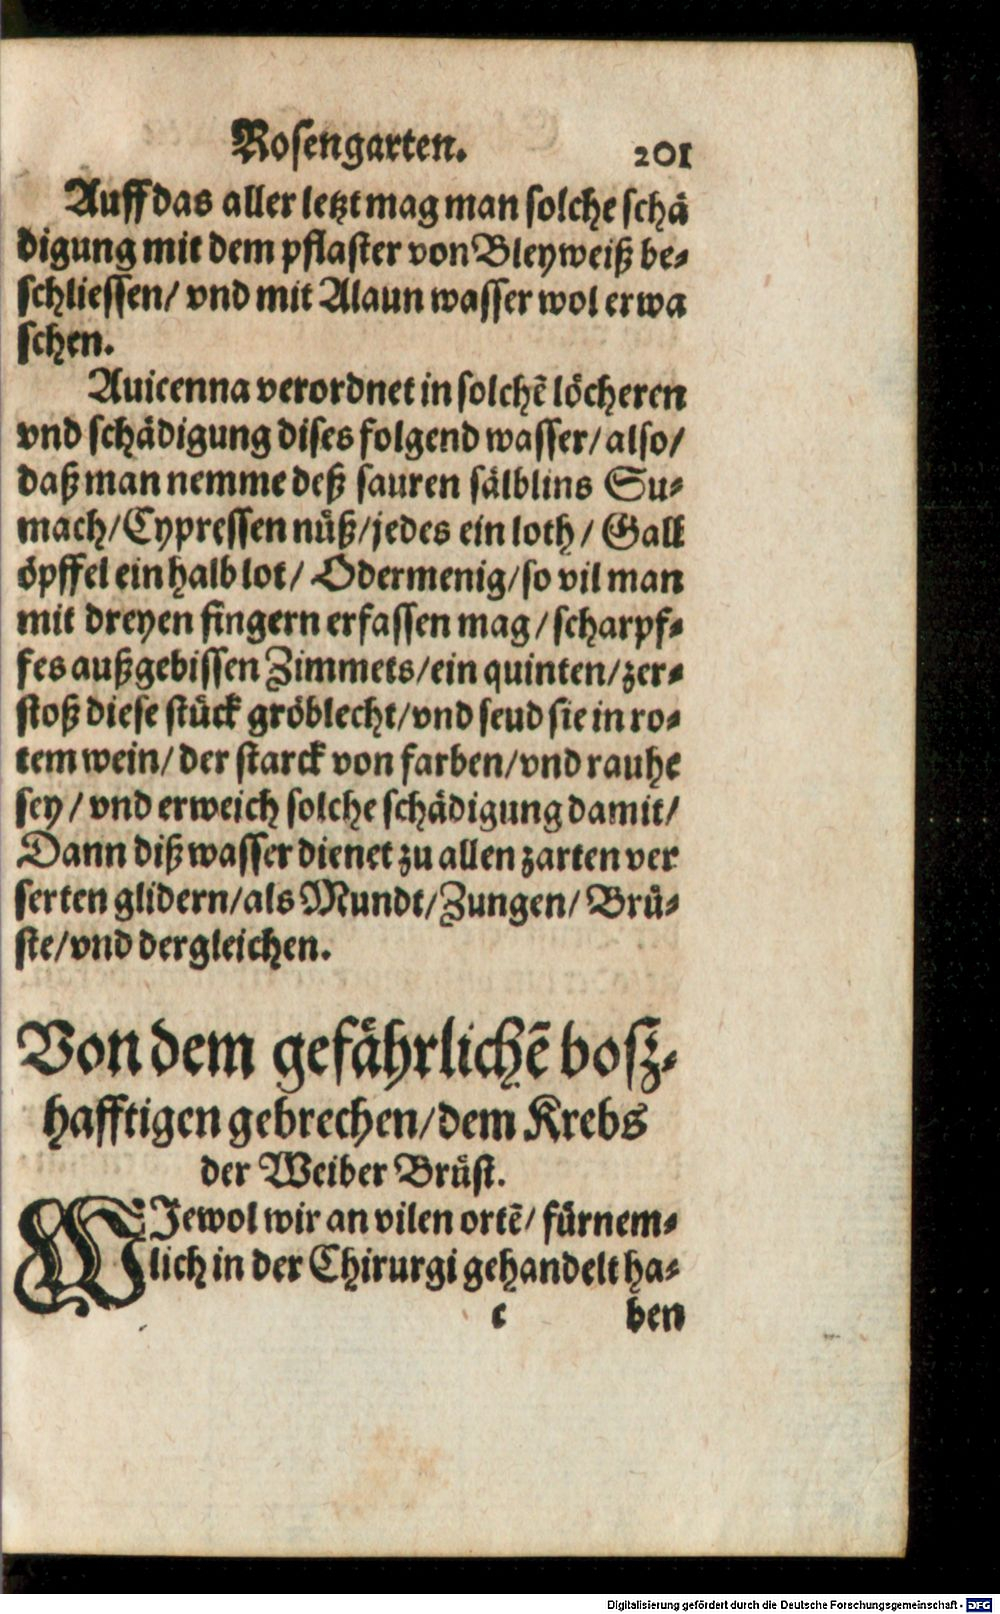 Rosengarten. 201
Auff das aller letzt mag man solche schaͤ
digung mit dem pflaster von Bleyweiß be⸗
schliessen/ vnd mit Alaun wasser wol erwa
schen.
Auicenna verordnet in solchē loͤcheren
vnd schaͤdigung dises folgend wasser/ also/
daß man nemme deß sauren saͤlblins Su⸗
mach/ Cypressen nuͤß/ jedes ein loth/ Gall
oͤpffel ein halb lot/ Odermenig/ so vil man
mit dreyen fingern erfassen mag/ scharpf⸗
fes außgebissen Zimmets/ ein quinten/ zer⸗
stoß diese stuͤck groͤblecht/ vnd seud sie in ro⸗
tem wein/ der starck von farben/ vnd rauhe
sey/ vnd erweich solche schaͤdigung damit/
Dann diß wasser dienet zu allen zarten ver
serten glidern/ als Mundt/ Zungen/ Bruͤ⸗
ste/ vnd dergleichen.
Von dem gefaͤhrlichē bosz⸗
hafftigen gebrechen/ dem Krebs
der Weiber Bruͤst.
WJewol wir an vilen ortē/ fuͤrnem⸗
lich in der Chirurgi gehandelt ha⸗
c ben
Digitalisierung gefördert durch die Deutsche Forschungsgemeinschaft - DFG